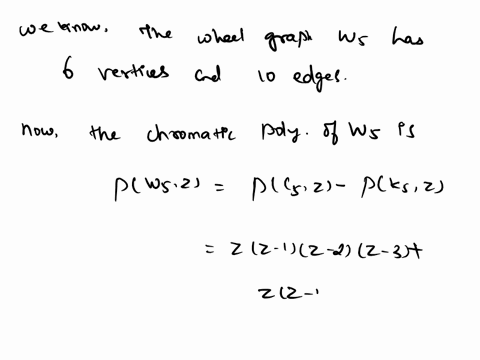 we know, The wheel graph W5 has
6 vertices and 10 edges.
Now, the chromatic poly. of W5 is
P(W5, z) = P(C5, z) - P(K5, z)
= z(z-1)(z-2)(z-3)+
z(z-1